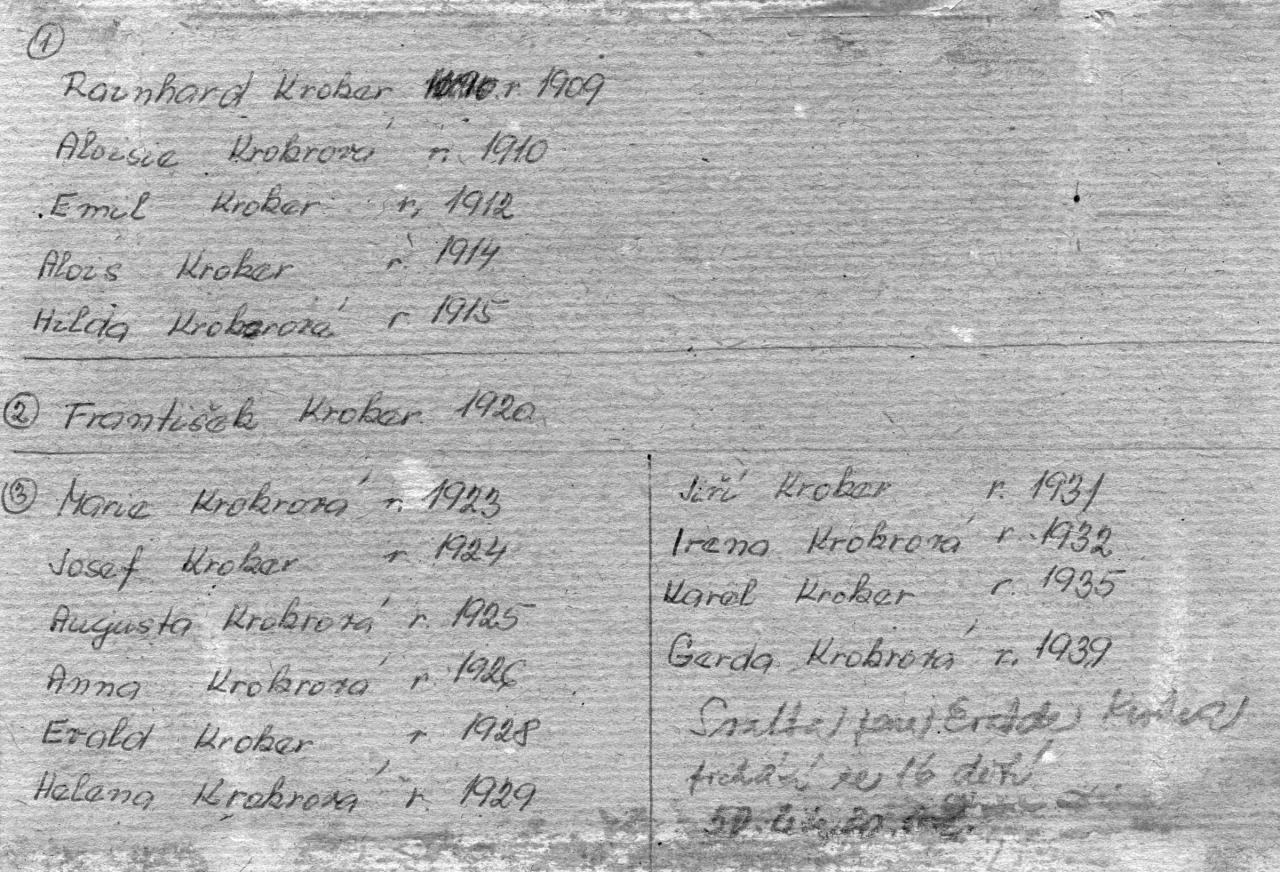 1
Rainhard Krober r. 1909
Aloisie Krobrová r. 1910
Emil Krober r. 1912
Alois Krober r. 1914
Hilda Kroberová r. 1915
2 František Krober 1920
3 Marie Krobrová r. 1923
Josef Krober r. 1924
Augusta Krobrová r. 1925
Anna Krobrová r. 1926
Evald Krober r 1928
Helena Krobrová r. 1929
Jiří Krober r. 1931
Irena Krobrová r. 1932
Karel Krober r. 1935
Gerda Krobrová r. 1939
ze 16 dětí